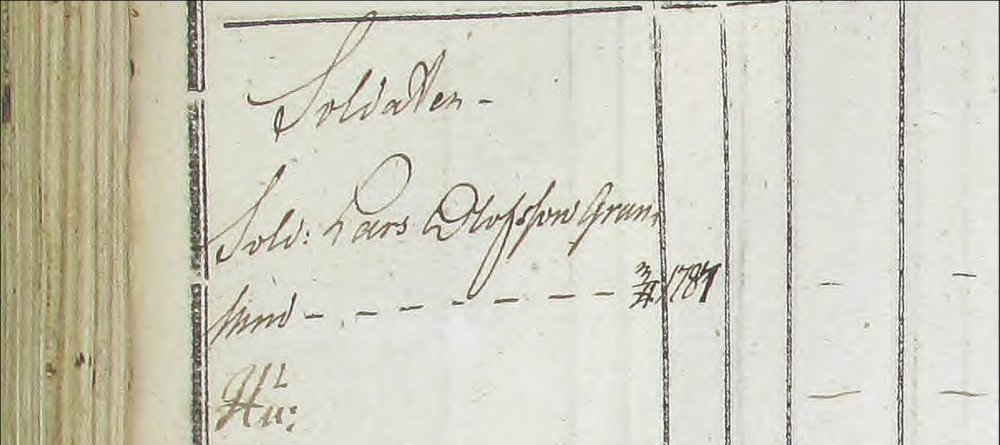 Soldaten -
Sold: Lars Olofsson Gran-
lund - - - - - - - 1787
Hu: